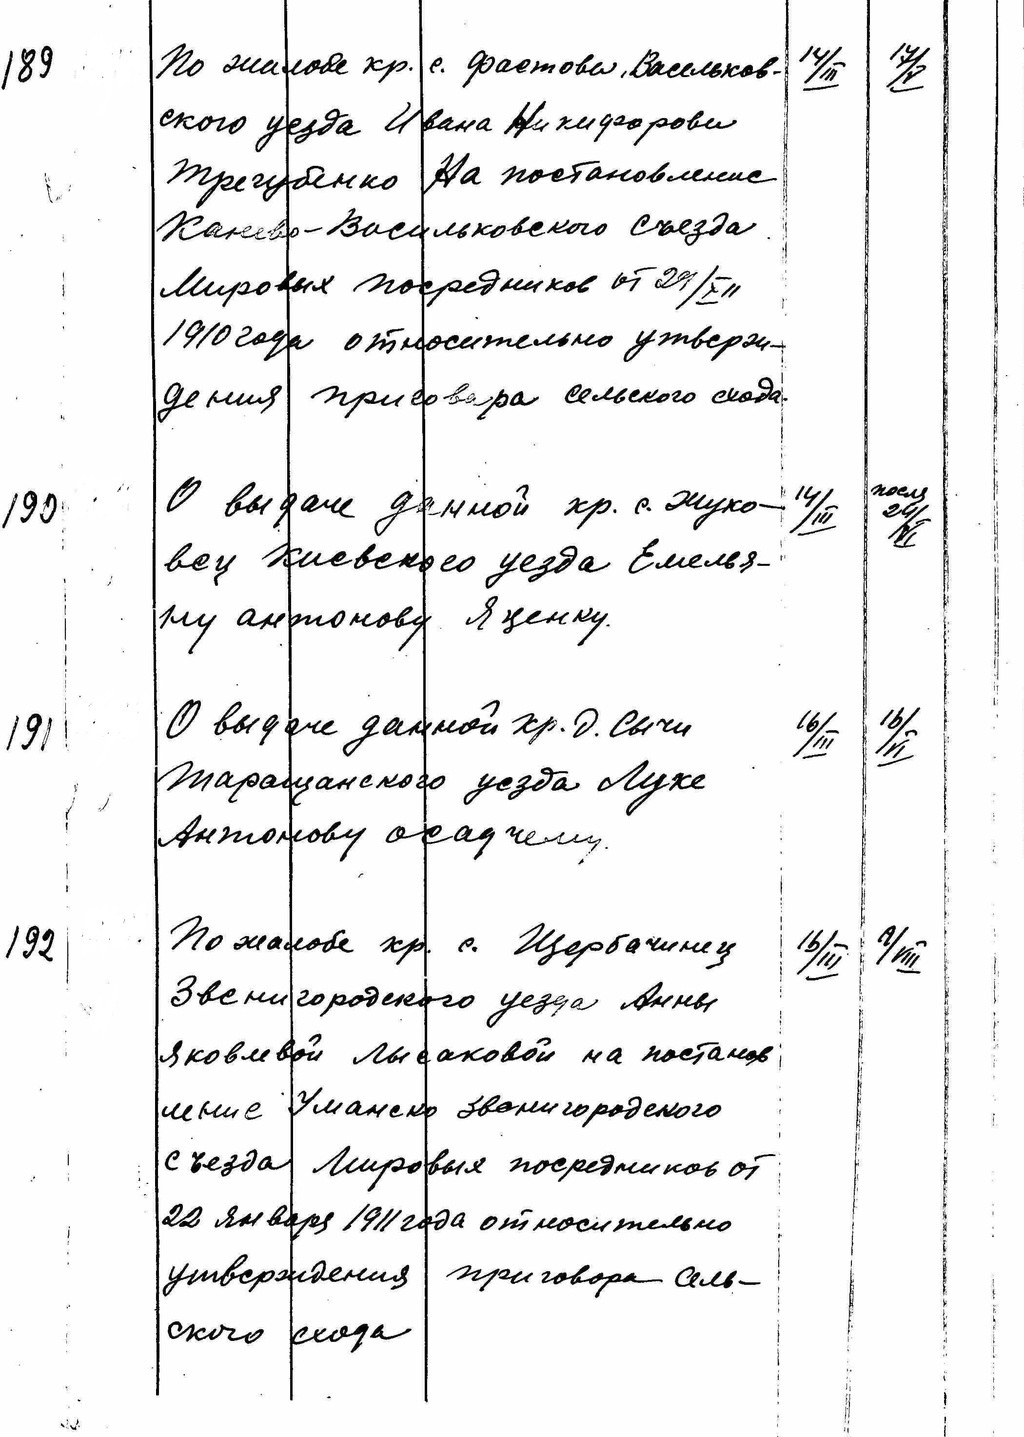 189 По жалобе кр. с. Фастова, Васильков- 14/III 17/V
ского уезда Ивана Никифорова
Трегубенко На постановление
Канево-Васильковского Съезда
Мировых посредников от 29/XII
1910 года относительно утверж-
дения приговора сельского схода.
190 О выдаче данной кр. с. Жуко- 14/III после 29/VI
вец Киевского уезда Емелья-
ну Антонову Яценку.
191 О выдаче данной кр. д. Сычи 16/III 16/VI
Таращанского уезда Луке
Антонову Осадчему.
192 По жалобе кр. с. Щербачинец 16/III 9/VIII
Звенигородского уезда Анны
Яковлевой Лысаковой на постанов
ление Уманско Звенигородского
съезда Мировых посредников от
22 января 1911 года относительно
утверждения приговора Сель-
ского схода